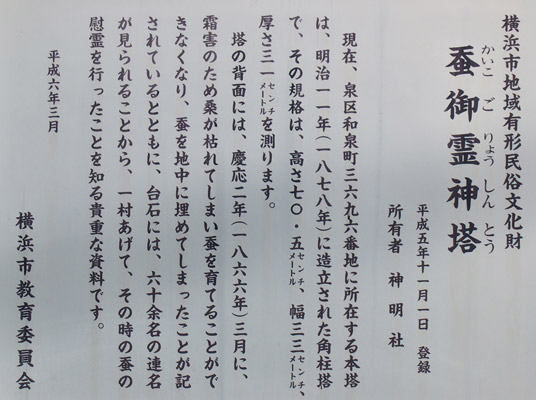 横浜市地域有形民俗文化財
蚕御霊神塔
かいこ ご りょう しん とう
平成五年十一月一日 登録
所有者 神明社
現在、泉区和泉町三六九六番地に所在する本塔
は、明治一一年(一八七八年)に造立された角柱塔
で、その規格は、高さ七〇・五センチメートル、幅三三センチメートル、
厚さ三一センチメートルを測ります。
塔の背面には、慶応二年(一八六六年)三月に、
霜害のため桑が枯れてしまい蚕を育てることがで
きなくなり、蚕を地中に埋めてしまったことが記
されているとともに、台石には、六十余名の連名
が見られることから、一村あげて、その時の蚕の
慰霊を行ったことを知る貴重な資料です。
平成六年三月
横浜市教育委員会